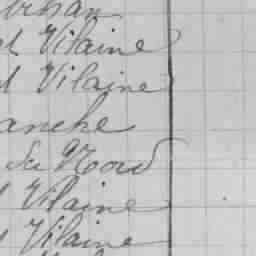 bihan
et Vilaine
et Vilaine
anche
du Nord
et Vilaine
et Vilaine